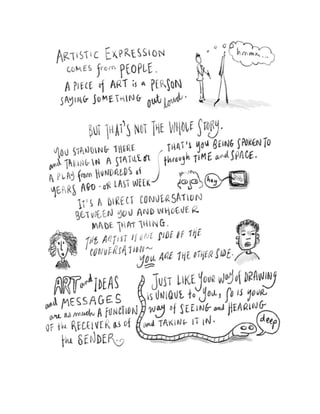 ARTISTIC EXPRESSION
COMES from PEOPLE.
A PIECE of ART is A PERSON
SAYING SOMETHING out loud.
hmmm...
BUT THAT'S NOT THE WHOLE STORY.
YOU STANDING THERE
and TAKING IN A STATUE or
A PLAY from HUNDREDS of
YEARS AGO - OR LAST WEEK
THAT'S YOU BEING SPOKEN TO
through TIME and SPACE.
hey
IT'S A DIRECT CONVERSATION
BETWEEN YOU AND WHOEVER
MADE THAT THING.
THE ARTIST IS ONE SIDE OF THE
CONVERSATION~
YOU ARE THE OTHER SIDE.
ART and IDEAS
and MESSAGES
are as much A FUNCTION
OF the RECEIVER as of
the SENDER
JUST LIKE YOUR WAY of DRAWING
is UNIQUE to YOU, SO IS YOUR
way of SEEING and HEARING
and TAKING IT IN.
deep